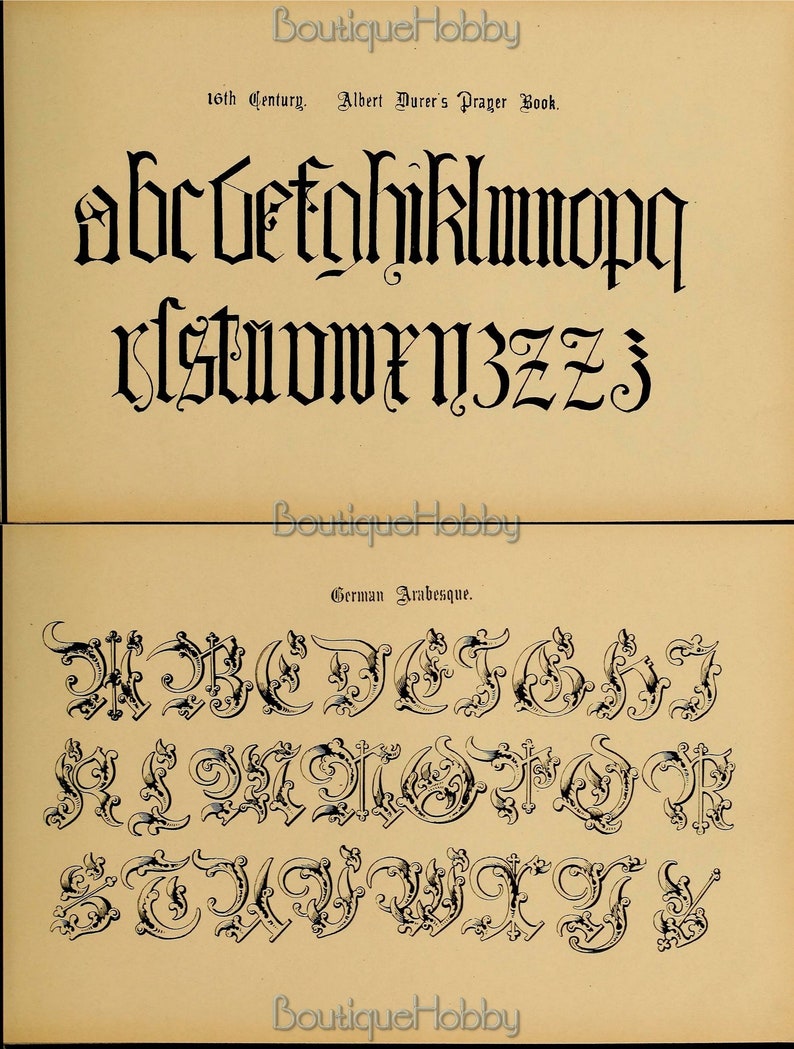 BoutiqueHobby
16th Century. Albert Durer's Prayer Book.
a b c d e f g h i k l m n o p q
r ſ s t u v w x y z z z z
BoutiqueHobby
German Arabesque.
A B C D E F G H I
K L M N O P Q R
S T U V W X Y Z
BoutiqueHobby